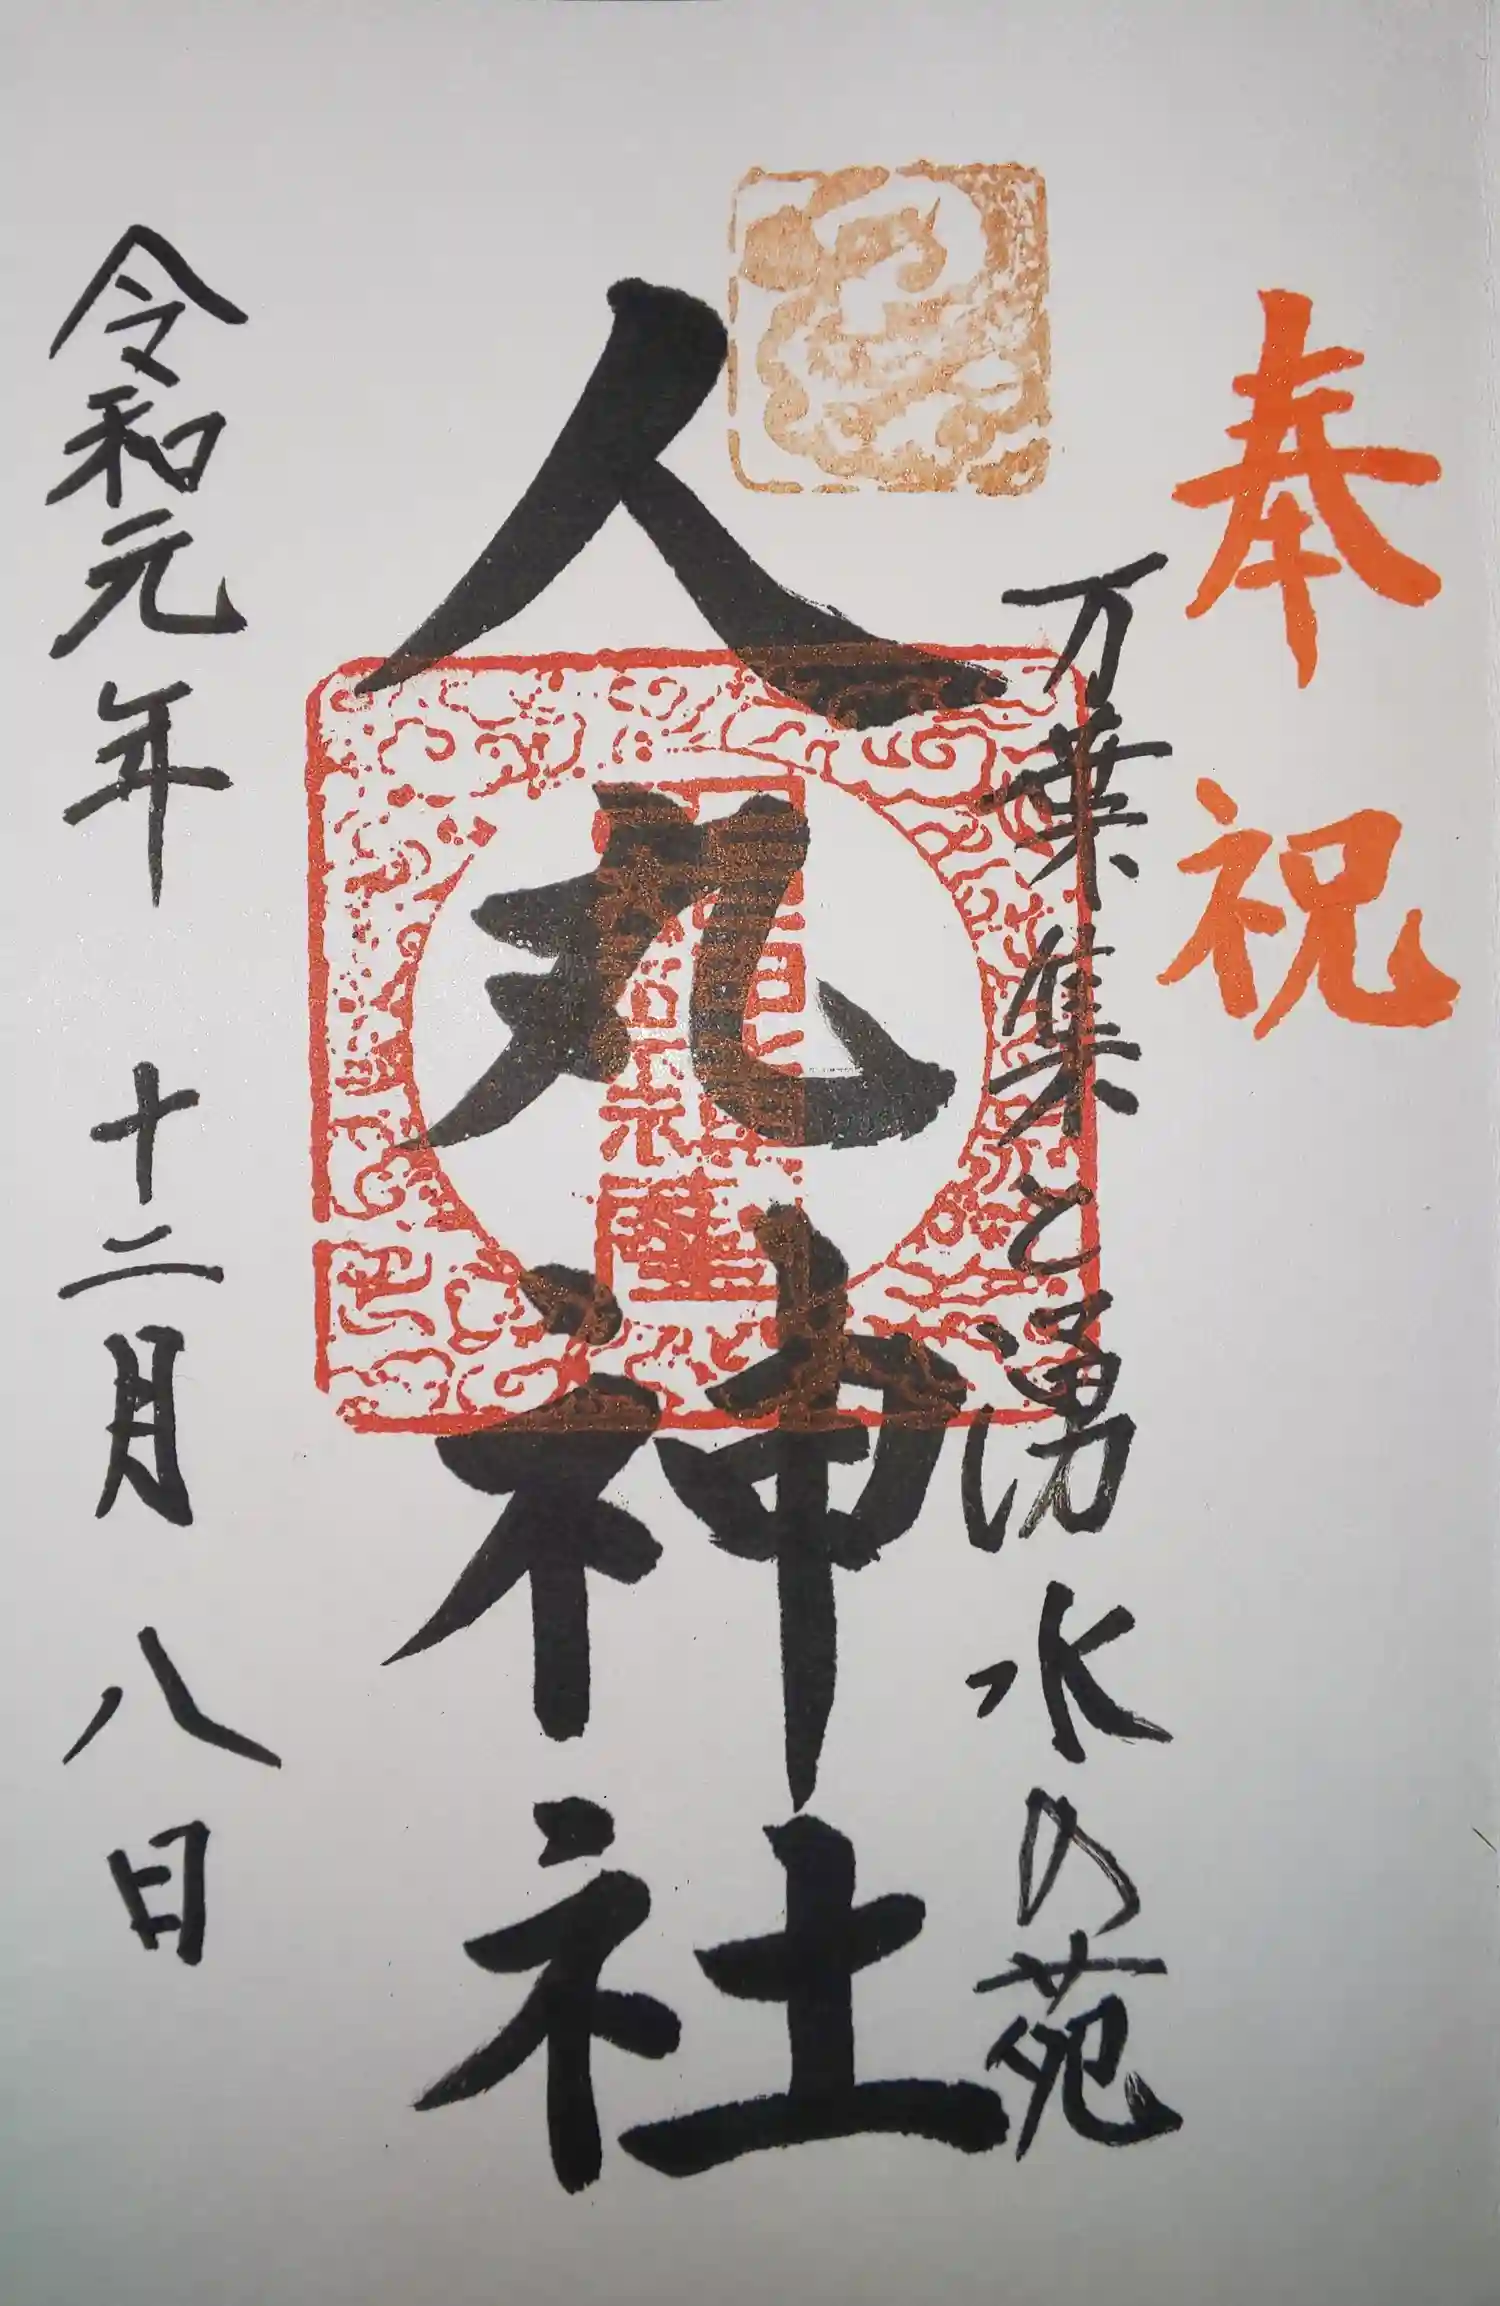 奉祝
万葉集と湧水の苑
人丸神社
令和元年十二月八日